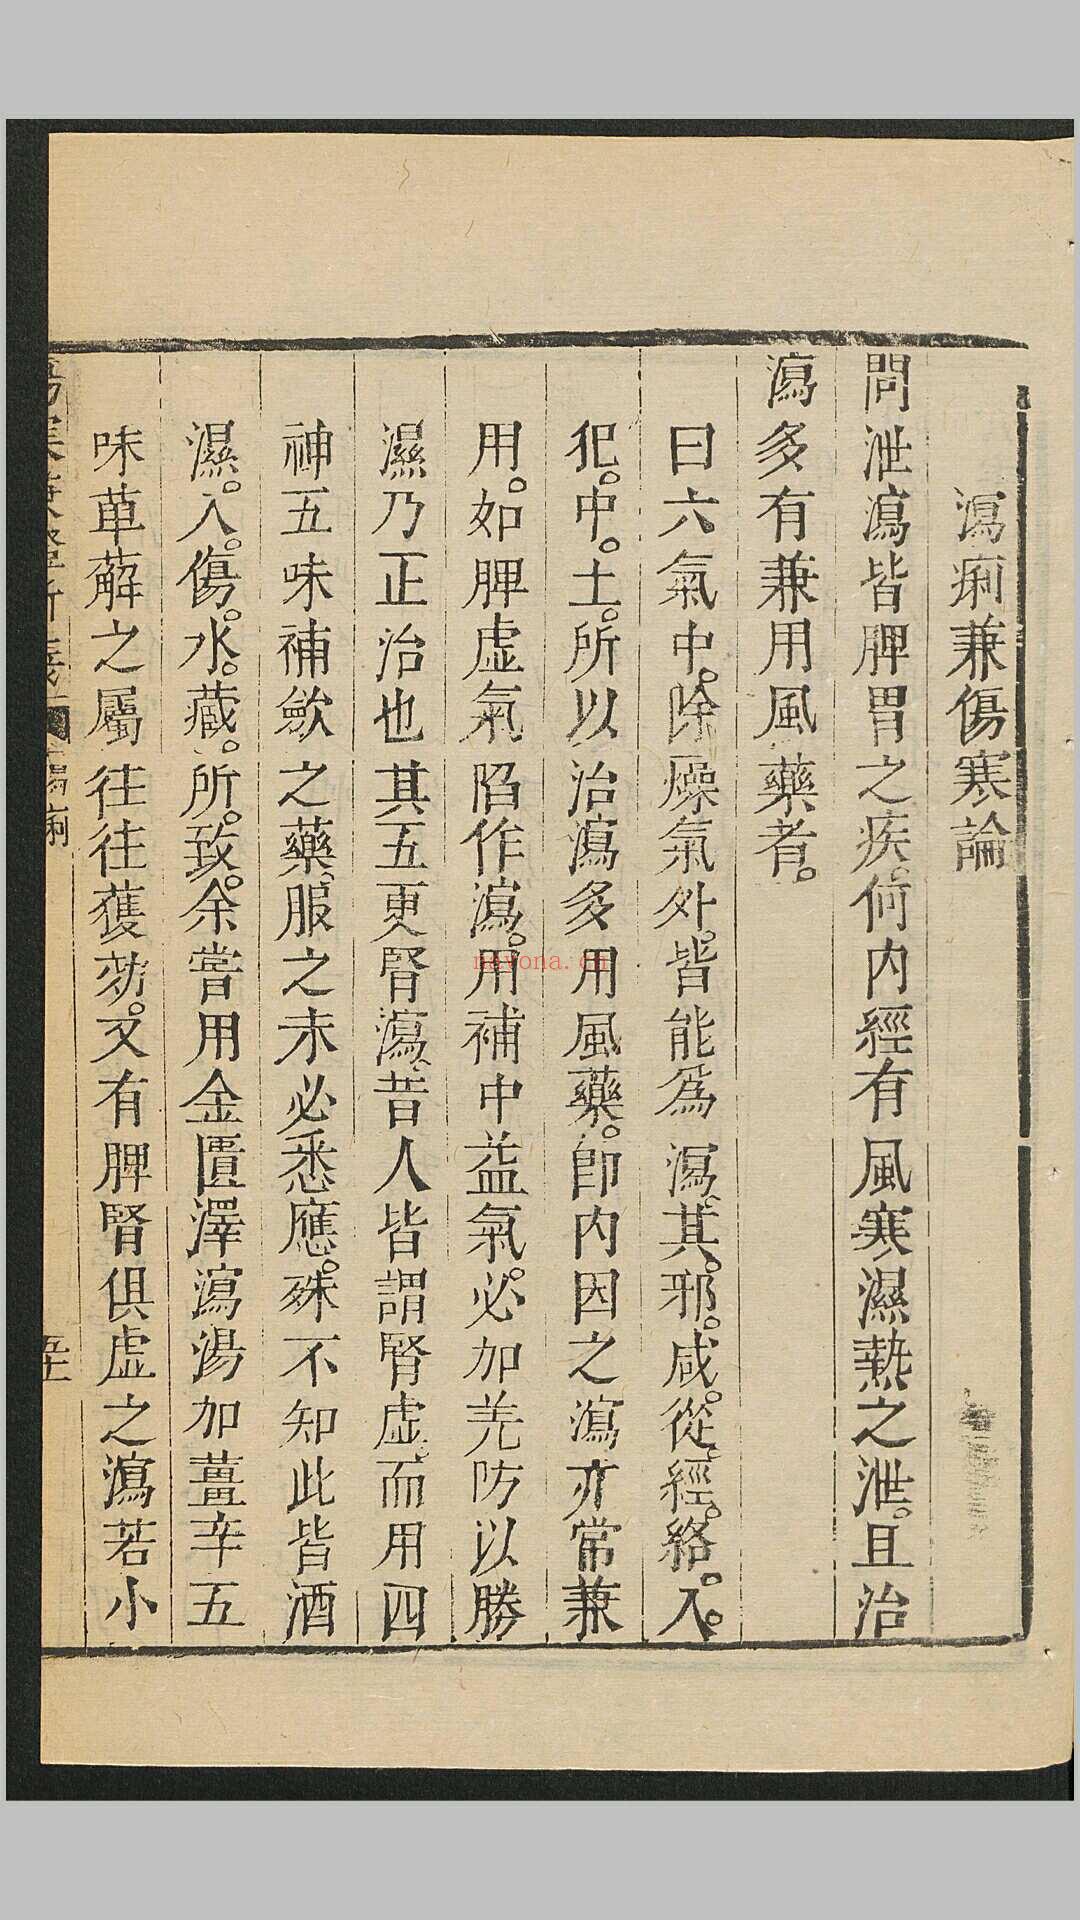 瀉痢兼傷寒論
問泄瀉皆脾胃之疾。何内經有風寒濕熱之泄。且治
瀉多有兼用風藥者。
曰六氣中。除燥氣外。皆能爲瀉。其。邪。咸。從。經。絡。入。
犯。中。土。所以治瀉多用風藥。卽内因之瀉亦常兼
用。如脾虛氣陷作瀉。用補中益氣。必加羌防以勝
濕乃正治也其五更腎瀉。昔人皆謂腎虛。而用四
神五味補歛之藥。服之未必悉應。殊不知此皆酒
濕。入。傷。水。藏。所。致。余嘗用金匱澤瀉湯加薑辛五
味萆薢之屬往往獲効。又有脾腎俱虛之瀉若小
瀉痢
navona.cn